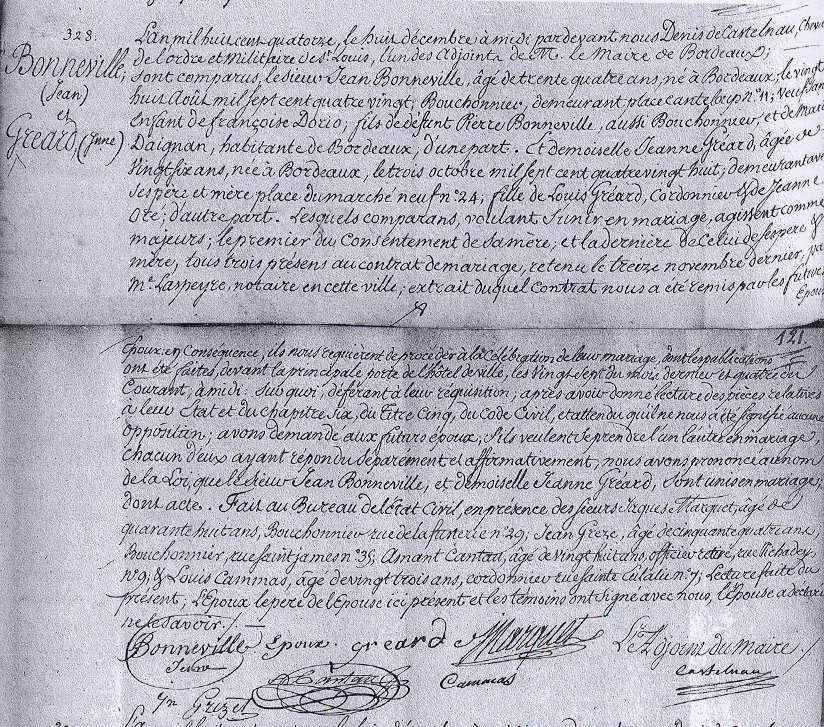 328.
Bonneville,
(Jean)
et
Gréard, (Jnne)
L'an mil huit cent quatorze, le huit décembre à midi par devant nous Denis de Castelnau, Cheva
de l'ordre et Militaire de St. Louis, l'un des Adjoints de M. le Maire de Bordeaux;
sont comparus, le sieur Jean Bonneville, âgé de trente quatre ans, né à Bordeaux, le vingt
huit Août mil sept cent quatre vingt; Bouchonnier, demeurant place canteloup n°. 11; veuf san
Enfant de françoise Dorio; fils de défunt Pierre Bonneville, aussi Bouchonnier, et de Marie
Daignan, habitante de Bordeaux, d'une part. Et demoiselle Jeanne Gréard, âgée de
Vingt six ans, née à Bordeaux, le trois octobre mil sept cent quatre vingt huit; demeurant ave
ses père et mère place du marché neuf n°. 24; fille de Louis Gréard, Cordonnier & de Jeanne
Oré; d'autre part. Lesquels comparans, voulant s'unir en mariage, agissent comme
majeurs; le premier du Consentement de sa mère; et la dernière de Celui de ses père &
mère, tous trois présens au contrat de mariage, retenu le treize novembre dernier, par
Me. Laspeyre, notaire en cette ville; extrait duquel Contrat nous a été remis par les futurs
Epoux
121.
Epoux: en Conséquence, ils nous requièrent de procéder à la Célébration de leur mariage, dont les publications
ont été faites, devant la principale porte de l'hôtel de ville, les Vingt sept du mois dernier et quatre du
Courant, à midi: sur quoi, déférant à leur réquisition, après avoir donné lecture des pièces relatives
à leur Etat et du chapitre Six, du Titre Cinq, du Code Civil, et attendu qu'il ne nous a été signifié aucune
opposition; avons demandé aux futurs époux, s'ils veulent se prendre l'un l'autre en mariage,
Chacun d'eux ayant répondu séparément et affirmativement; nous avons prononcé au nom
de la Loi, que le sieur Jean Bonneville, et demoiselle Jeanne Gréard, sont unis en mariage;
dont acte. Fait au Bureau de l'Etat Civil, en présence des sieurs Jaques Marquet, âgé de
quarante huit ans, Bouchonnier rue de n°. 29; Jean Greze, âgé de cinquante quatre ans,
Bouchonnier, rue saint james n°. 35; Amant Cantau, âgé de vingt huit ans, officier retiré, rue
n°. 9; & Louis Cammas, âgé de vingt trois ans, cordonnier rue sainte Eulalie n°. 7; Lecture faite du
présent; l'Epoux le père de l'Epouse ici présent et les témoins ont signé avec nous, l'épouse a déclaré
ne le savoir./.
Bonneville Epoux. greard Marquet L'Adjoint du Maire
Cantau Cammas Castelnau
Grizet